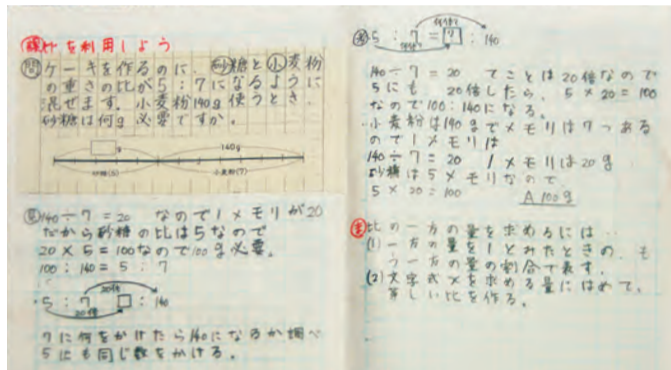 課 比を利用しよう
問 ケーキを作るのに、砂糖と小麦粉
の重さの比が5:7になるように
混ぜます。小麦粉140g使うとき、
砂糖は何g必要ですか。
□g 140g
砂糖(5) 小麦粉(7)
140÷7=20 なので1メモリが20
だから砂糖の比は5なので
20×5=100なので100g必要。
100:140=5:7
20倍
5:7 □:140
20倍
7に何をかけたら140になるか調べ
5にも同じ数をかける。
5:7=?:140
140÷7=20 てことは20倍なので
5にも 20倍したら、5×20=100
なので100:140になる。
小麦粉は140gでメモリは7つある
ので1メモリは
140÷7=20 1メモリは20g
砂糖は5メモリなので、
5×20=100 A 100g
比の一方の量を求めるには…
(1)一方の量を1とみたときの、も
う一方の量の割合で表す。
(2)文字式xを求める量にはめて、
等しい比を作る。